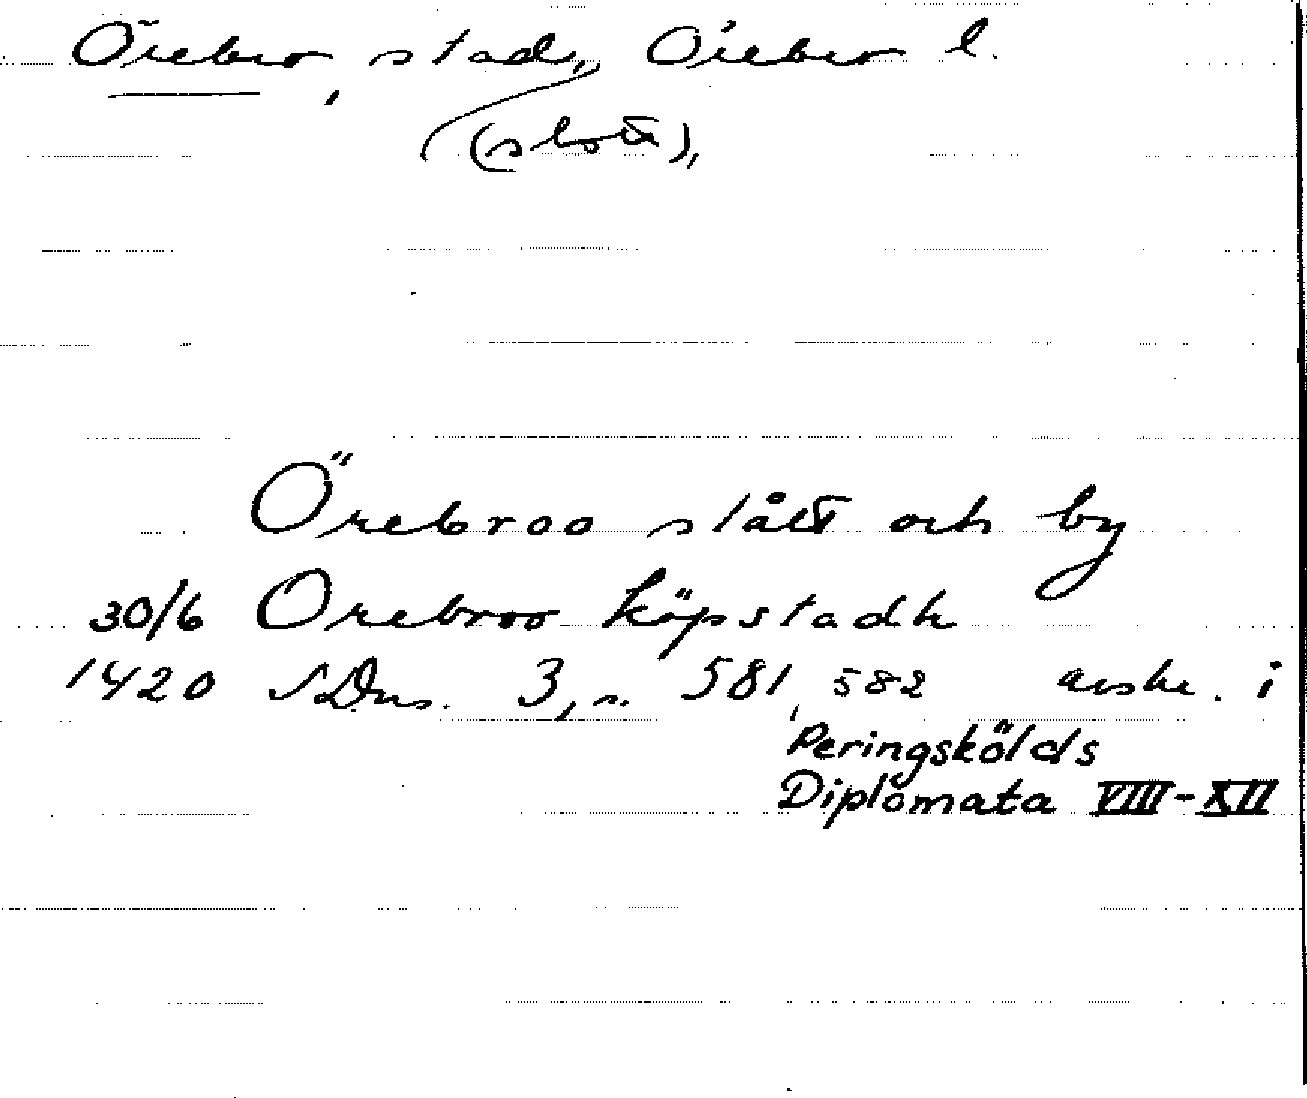 Örebro, stad, Örebro l.
(slott),
Örebroo slått och by
30/6 Orebroo köpstadh
1420 SDns. 3, s. 581, 582 avskr. i
Peringskölds
Diplomata VIII-XII